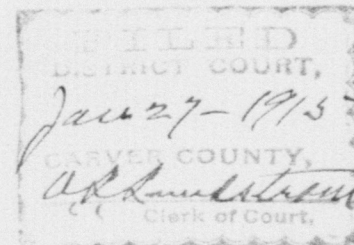 FILED
DISTRICT COURT,
Jan 27-1915
CARVER COUNTY,
Clerk of Court,